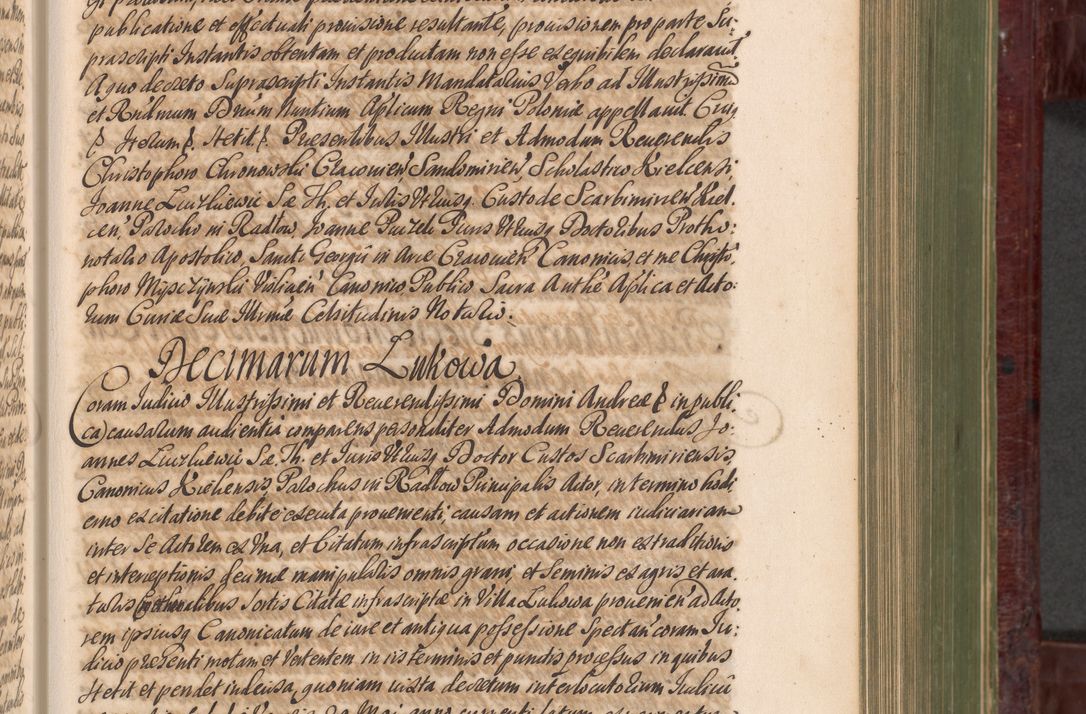 publicatione et effectuali prouisione resultante, prouisionem pro parte Su-
prascripti Instantis obtentam et productam non esse exequibilem declarauit
A quo decreto Suprascripti Instantis Mandatarius Verbo ad Illustrissimū
et Rndmum Dnum Nuntium Aplicum Regni Poloniæ appellauit. Cuj
Iterum Stetit. Præsentibus Illustri et Admodum Reuerendis
Christophoro Chronowski Cracouien Sandomirien, Scholastico Kielcensi
Joanne Luczkiewic Sæ Th. et Juris Vtriusq Custode Scarbimirien Kiel-
cen, Parocho in Radlow, Joanne Puzeli Juris Vtriusq Doctoribus Protho:
notario Apostolico, Sancti Georgii in Arce Cracouien Canonicis, et me Christo
phoro Mysczynski Visliciēn Canonico Publico Sacra Authē Aplica et Acto:
rum Curiæ Suæ Illrmæ Celsitudinis Notario.
Decimarum Lukowa
Coram Iudicio Illustrissimi et Reuerendissimi Domini Andreæ in publi-
ca causarum audientia comparens personaliter Admodum Reuerendus Jo-
annes Luczkiewic Sæ. Th. et Iuris Vtriusq Doctor Custos Scarbimiriensis
Canonicus Kielcensis Parochus in Radlow Principalis Actor, in termino hodi
erno ex citatione debite executa prouenienti, causam et actionem iudiciariam
inter Se Actorem ex Vna, et Citatum infrascriptum occasione non extraditionis
et interceptionis decimæ manipularis omnis grani, et Seminis ex agris et ara-
turis Sortis Citatæ infrascriptæ in Villa Lukowa prouenien ad Acto
rem ipsiusq Canonicatum de iure et antiqua possessione Spectan coram Iu:
dicio præsenti motam et Vertentem in iis terminis et punctis processus in quibus
Stetit et pendet indecisa, quoniam iuxta decretum interlocutorium Iudicii